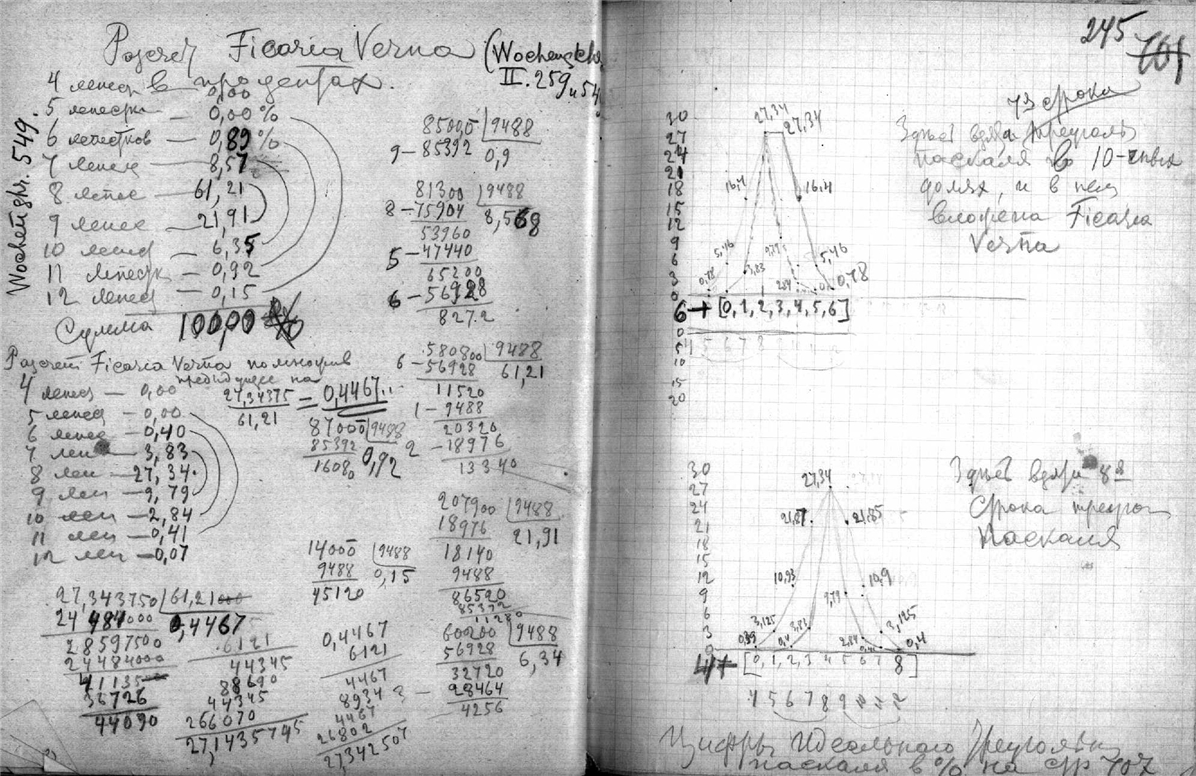 Расчет Ficaria Verna (Wochenschr.
в процентах. II. 259 и 54
Wochenschr. 549.
4 лепес 0,00
5 лепестк — 0,00 %
6 лепестков — 0,89 %
7 лепес — 8,57
8 лепес — 61,21
9 лепес — 21,91
10 лепес — 6,35
11 лепестк — 0,92
12 лепес — 0,15
Сумма 100,00 %
85000 | 9488
9 — 85392 0,9
81300 | 9488
8 — 75904 8,568
53960
5 — 47440
65200
6 — 56928
8272
580800 | 9488
6 — 56928 61,21
11520
1 — 9488
20320
2 — 18976
13340
207900 | 9488
18976 21,91
18140
9488
86520
85392
11280
60200 | 9488
56928 6,34
32720
28464
4256
Расчет Ficaria Verna помножив
предыдущее на
27,34375 / 61,21 = 0,4467..
4 лепес — 0,00
5 лепес — 0,00
6 лепес — 0,40
7 леп — 3,83
8 леп — 27,34
9 леп — 9,79
10 леп — 2,84
11 леп — 0,41
12 леп — 0,07
87000 | 9488
85392 0,92
1608
14000 | 9488
9488 0,15
45120
27,343750 | 61,21000
24 484000 0,4467
2859750
24484000
41135
36726
44090
6121
44345
88690
44345
266070
27,1435745
0,4467
6121
4467
8934
4467
26802
27,342507
245
701
7я строка
Здесь взят треуголь
паскаля в 10-чных
долях, и в нем
вложена Ficaria
Verna
30
27
24
21
18
15
12
9
6
3
0
27,34
27,34
16,4
16,4
5,46
3,83
9,79
2,84
5,46
0,78
0,78
6 → [0,1,2,3,4,5,6]
0
5
10
15
20
Здесь взята 8я
Строка треуг
Паскаля
30
27
24
21
18
15
12
9
6
3
0
27,34
21,87
21,85
10,93
10,9
9,79
3,125
3,83
3,125
0,39
0,4
2,84
0,4
4 → [0,1,2,3 4 5 6 7 8]
4 5 6 7 8 9
Цифры Идеального Треугольн
паскаля в % на стр 707